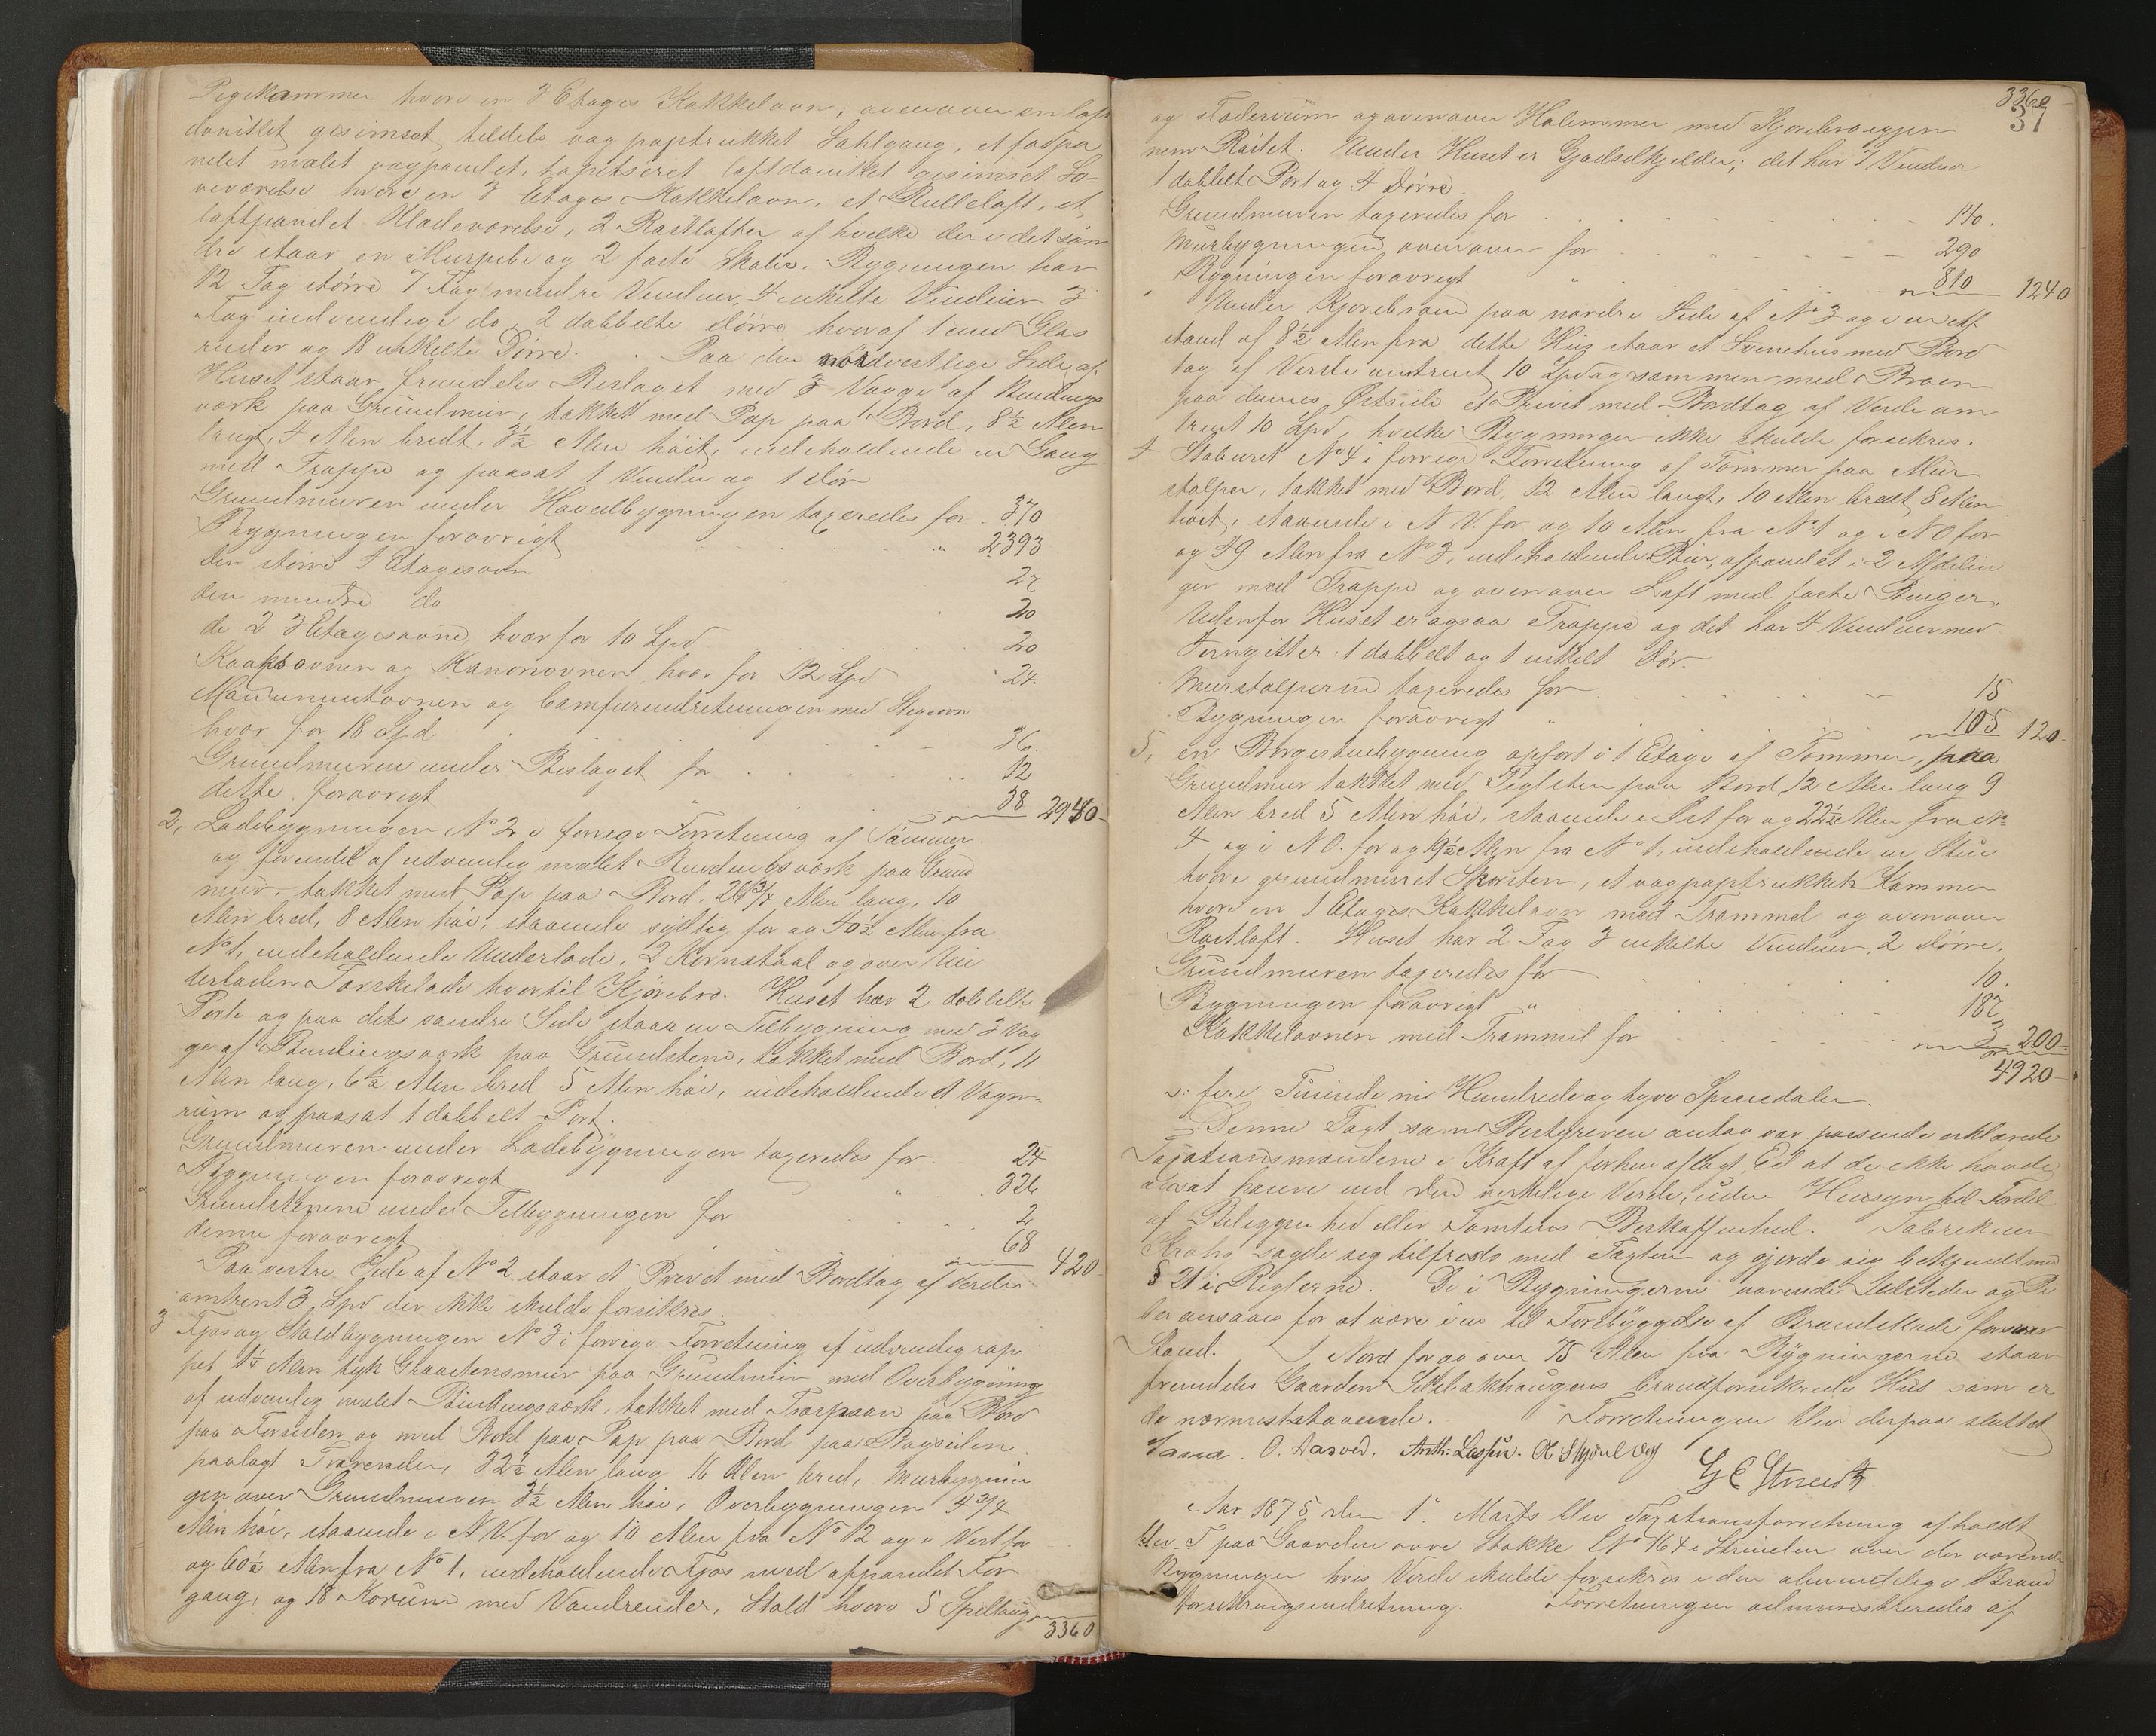 Pigekammer hvori en 3 Etages Kakkelovn, ovenover en loft
daniket gesimset tildels vagpaptrukket Sahlgang, et fadpa
nelet malet vagpanelet, tapetseret loftdaniket gesimset So=
veværelse hvori en 3 Etages Kakkelovn, et Rulleloft, et
loftpanelet Klædeværelse, 2 Røstlofter af hvilke der i det søn
dre staar en Murpibe og 2 faste Skabe. Bygningen har
12 Fag større 7 Fag mindre Vinduer, 4 enkelte Vinduer 3
Fag indvendige do, 2 dobbelte Dørre hvoraf 1 med Glas
ruder og 18 enkelte Dørre. Paa den nordvestlige Side af
Huset staar fremdeles Bislaget med 3 Vægge af Bindings
værk paa Grundmur, takket med Pap paa Bord, 8½ Alen
langt, 4 Alen bredt, 3½ Alen høit, indeholdende en Gang
med Trappe og paasat 1 Vindu og 1 Dør
Grundmuren under Hovedbygningen taxeredes for 370
Bygningen forøvrigt " 2393
den større 4 Etagesovn 27
den mindre do 20
de 2 3 Etagesovne, hver for 10 Spd 20
Kaagsovnen og Kanonovnen, hver for 12 Spd 24
Monumentovnen og Comfurindretningen med Stegeovn
hver for 18 Spd 36.
Grundmuren under Bislaget for 12
dette forøvrigt 38 2940
2, Ladebygningen No 2 i forrige Forretning af Tømmer
og forendel af udvendig malet Bindingsværk paa Grund
mur, takket med Pap paa Bord, 26¾ Alen lang, 10
Alen bred, 8 Alen høi, staaende sydlig for og 40½ Alen fra
No 1, indeholdende Underlade, 2 Kornstaal og over Un
derladen Tørskelade hvortil Kjørebro. Huset har 2 dobbelte
Porte og paa dets søndre Side staar en Tilbygning med 3 Væg
ge af Bindingsværk paa Grundstene, takket med Bord, 11
Alen lang, 6½ Alen bred 5 Alen høi, indeholdende et Vogn=
rum og paasat 1 dobbelt Port.
Grundmuren under Ladebygningen taxeredes for 24
Bygningen forøvrigt " 326
Grundstenene under Tilbygningen for 2
denne forøvrigt 68 420
Paa vestre Side af No 2 staar et Privet med Bordtag af Verdi
omtrent 3 Spd der ikke skulde forsikres.
3 Fjøs og Staldbygningen No 3 i forrige Forretning af udvendig rap
pet 1¼ Alen tyk Graastensmur paa Grundmur med Overbygning
af udvendig malet Bindingsværk, takket med Træspaan paa Bord
paa Forsiden og med Bord paa Pap paa Bord paa Bagsiden
paalagt Tværrender, 32½ Alen lang 16 Alen bred, Murbygnin
gen over Grundmuren 3½ Alen høi, Overbygningen 4¾
Alen høi, staaende i N V. for og 10 Alen fra No 2 og i Vest for
og 60½ Alen fra No 1, indeholdende Fjøs med afpanelet For
gang, og 18 Korum med Vandrender, Stald hvori 5 Spiltaug
3360
3360
37
og Foderrum og ovenover Hølemmer med Kjørebro igjen
nem Røstet. Under Huset er Gjødselkjelder; det har 7 Vinduer
1 dobbelt Port og 4 Dørre.
Grundmuren taxeredes for 140.
Murbygningen ovenover for 290
Bygningen forøvrigt " 810 1240
Under Kjørebroen paa nordre Side af No 3 og i en Af
stand af 8½ Alen fra dette Hus staar et Svinehus med Bord
tag af Verdi omtrent 10 Spd og sammen med Broen
paa dennes Østside et Privet med Bordtag af Verdi om
trent 10 Spd, hvilke Bygninger ikke skulde forsikres.
4 Staburet No 4 i forrige Forretning af Tømmer paa Mur
stolper, takket med Bord, 12 Alen langt, 10 Alen bredt 8 Alen
høit, staaende i N V. for og 10 Alen fra No 1 og i N O for
og 49 Alen fra No 3, indeholdende Bur, afpanelet i 2 Afdelin
ger med Trappe og ovenover Loft med faste Binger.
Udenfor Huset er ogsaa Trappe og det har 4 Vinduer med
Jerngitter 1 dobbelt og 1 enkelt Dør.
Murstolperne taxeredes for 15
Bygningen forøvrigt " 105 120
5, en Borgestuebygning opført i 1 Etage af Tømmer paa
Grundmur takket med Teglsten paa Bord, 12 Alen lang 9
Alen bred 5 Alen høi, staaende i Øst for og 22½ Alen fra No
4 og i N.O. for og 19½ Alen fra No 1, indeholdende en Stue
hvori grundmuret Skorsten, et vagpaptrukket Kammer
hvori en 1 Etages Kakkelovn med Trommel og ovenover
Røstloft. Huset har 2 Fag 3 enkelte Vinduer, 2 Dørre.
Grundmuren taxeredes for 10.
Bygningen forøvrigt " 187
Kakkelovnen med Trommel for 3 200
4920
o: fire Tusinde ni Hundrede og tyve Speciedaler.
Denne Taxt som Bestyreren antog var passende erklærede
Taxationsmændene i Kraft af forhen aflagt Ed at de ikke havde
ansat høiere end den virkelige Verdi, uden Hensyn til Fordel
af Beliggenhed eller Tomtens Beskaffenhed. Fabrikeier
sagde sig tilfreds med Taxten og gjorde sig bekjendt med
§ 21 i Reglerne. De i Bygningerne værende Ildsteder og Pi
ber ansaaes for at være i en til Forebyggelse af Brandskade forsvar
Stand. I Nord for og over 75 Alen fra Bygningerne staar
fremdeles Gaarden brandforsikrede Hus som er
de nærmeststaaende. Forretningen blev derpaa sluttet
Sand. O. Aasved. Anth: Lassen.
G E Strindt
Aar 1875 den 1' Marts blev Taxationsforretning afholdt
paa Gaarden øvre Stokke LNo 164 i Strinden over der værende
Bygninger hvis Verdi skulde forsikres i den almindelige Brand
forsikringsindretning. Forretningen administreredes af